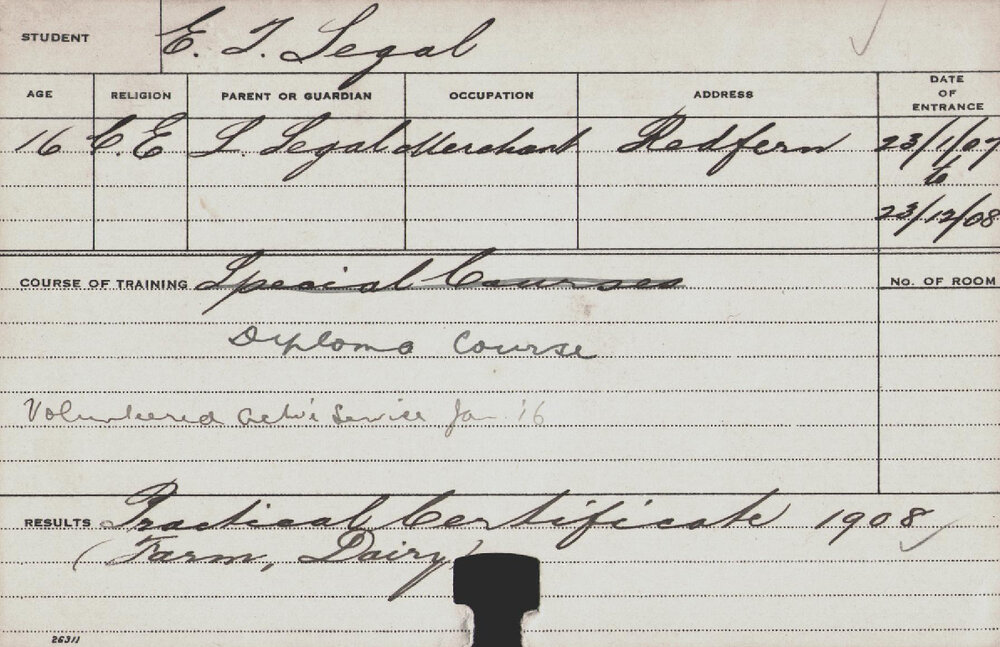 STUDENT E. T. Legal
AGE RELIGION PARENT OR GUARDIAN OCCUPATION ADDRESS DATE OF ENTRANCE
16 C.E L. Legal Merchant Redfern 23/1/07
to
23/12/08
COURSE OF TRAINING Special Courses No. OF ROOM
Diploma Course
Volunteered Active Service Jan '16
RESULTS Practical Certificate 1908
(Farm, Dairy)
26311